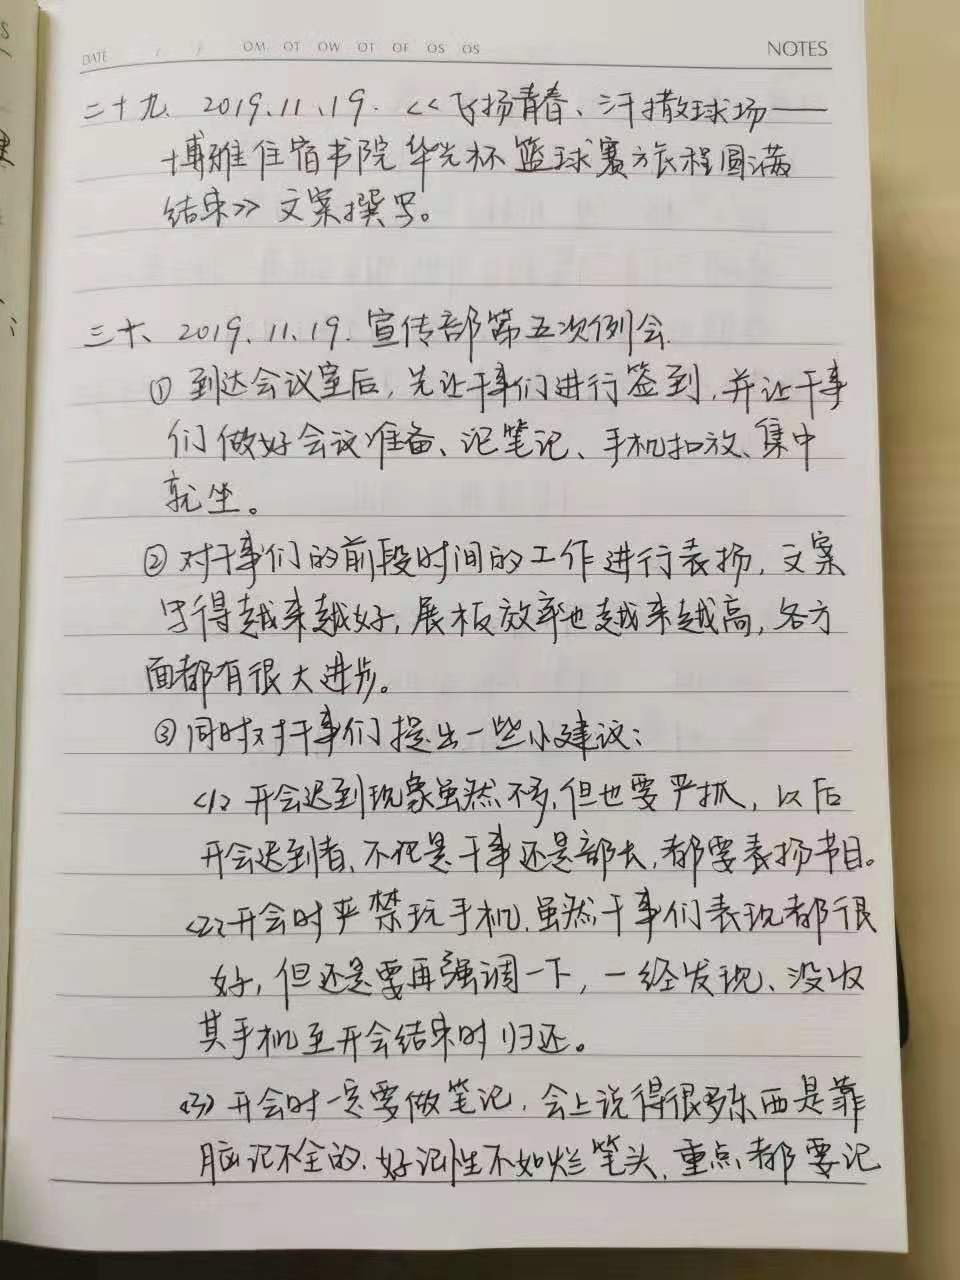 DATE / / OM OT OW OT OF OS OS NOTES
二十九、2019.11.19.《飞扬青春、汗撒球场——
博雅住宿书院华光杯篮球赛旅程圆满
结束》文案撰写。
三十、2019.11.19.宣传部第五次例会.
①到达会议室后,先让干事们进行签到,并让干事
们做好会议准备、记笔记、手机扣放、集中
就坐。
②对干事们的前段时间的工作进行表扬,文案
写得越来越好,展板效率也越来越高,各方
面都有很大进步。
③同时对干事们提出一些小建议:
<1>开会迟到现象虽然不多,但也要严抓,以后
开会迟到者,不论是干事还是部长,都要表扬节目。
<2>开会时严禁玩手机,虽然干事们表现都很
好,但还是要再强调一下,一经发现、没收
其手机至开会结束时归还。
<3>开会时一定要做笔记,会上说得很多东西是靠
脑记不全的,好记性不如烂笔头,重点都要记